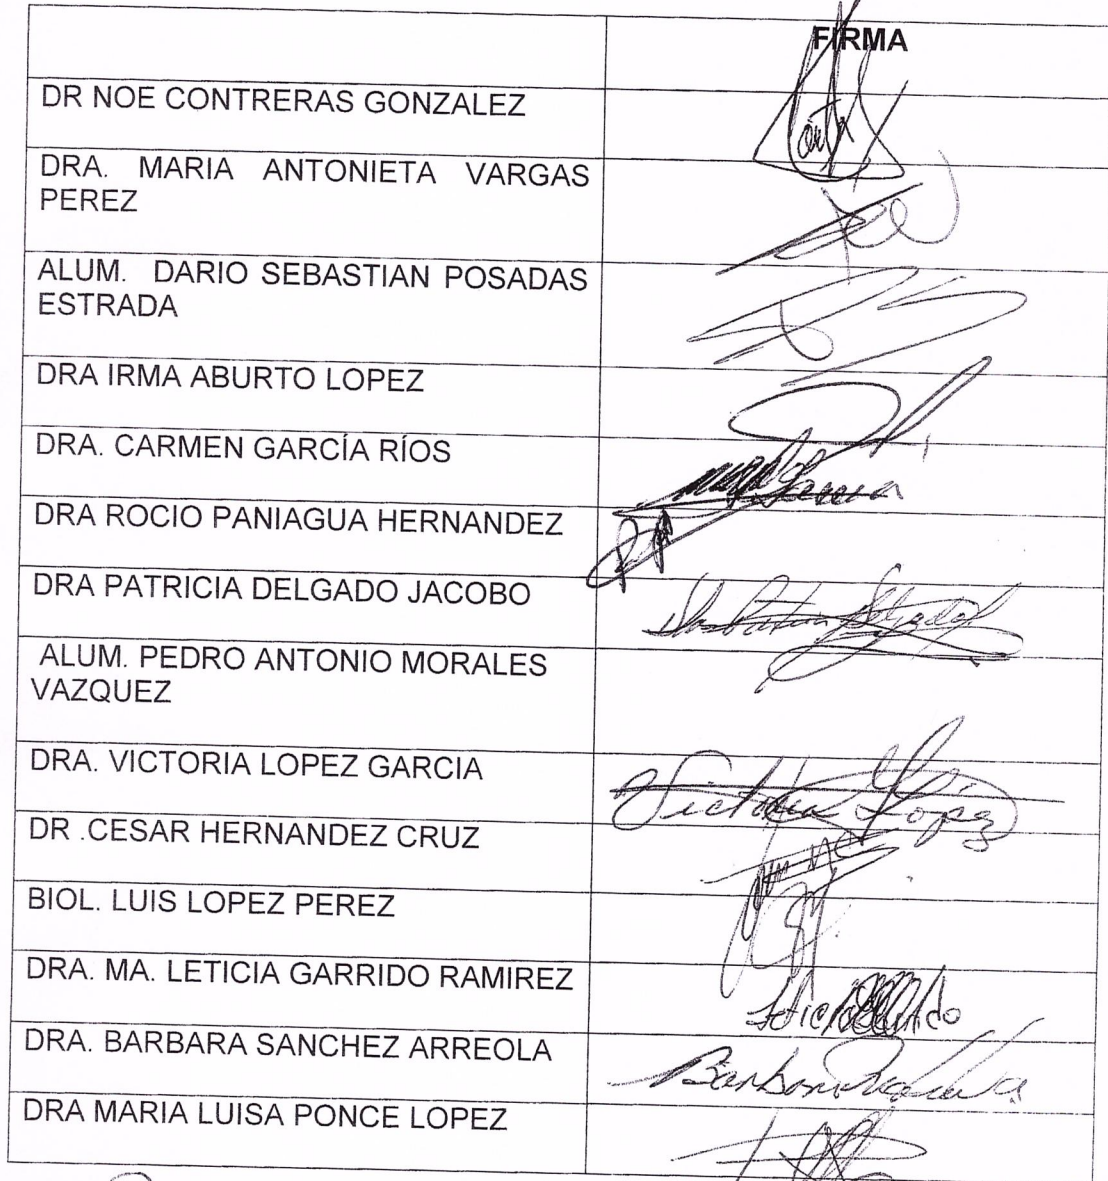 FIRMA
DR NOE CONTRERAS GONZALEZ
DRA. MARIA ANTONIETA VARGAS
PEREZ
ALUM. DARIO SEBASTIAN POSADAS
ESTRADA
DRA IRMA ABURTO LOPEZ
DRA. CARMEN GARCÍA RÍOS
DRA ROCIO PANIAGUA HERNANDEZ
DRA PATRICIA DELGADO JACOBO
ALUM. PEDRO ANTONIO MORALES
VAZQUEZ
DRA. VICTORIA LOPEZ GARCIA
Victoria López
DR .CESAR HERNANDEZ CRUZ
BIOL. LUIS LOPEZ PEREZ
DRA. MA. LETICIA GARRIDO RAMIREZ
DRA. BARBARA SANCHEZ ARREOLA
DRA MARIA LUISA PONCE LOPEZ